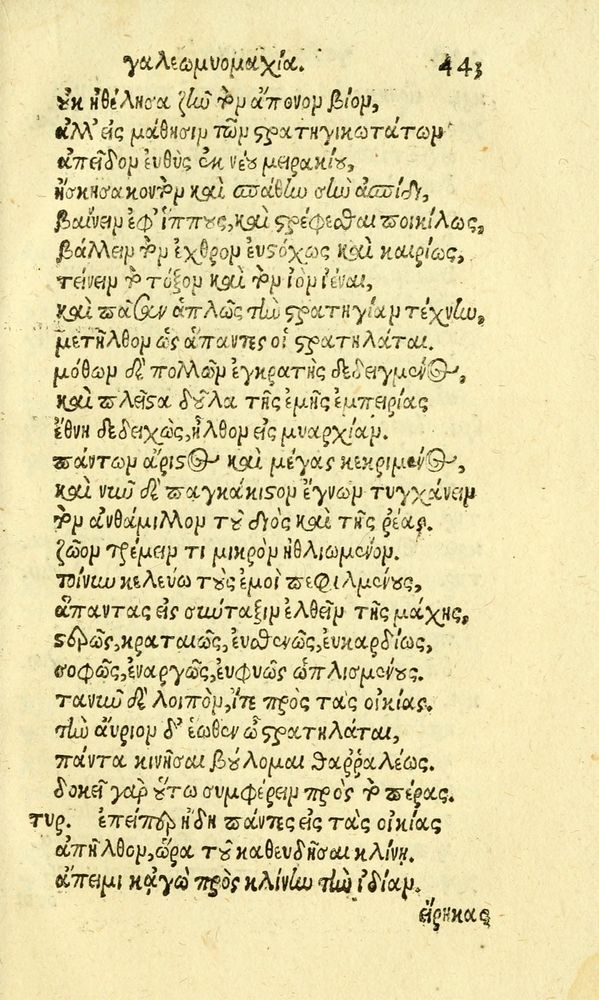 γαλεωμυομαχία. 443
οὐκ ἠθέλησα ζῆν τὸν ἄπονον βίον,
ἀλλ' εἰς μάθησιν τῶν στρατηγικωτάτων
ἀπεῖδον εὐθὺς ἐκ νέου μειρακίου,
ἤσκησα κοντὸν καὶ σπάθην σὺν ἀσπίδι,
βαίνειν ἐφ' ἵππους, καὶ στρέφεσθαι ποικίλως,
βάλλειν τὸν ἐχθρὸν εὐστόχως καὶ καιρίως,
τείνειν τὸ τόξον καὶ τὸν ἰὸν ἱέναι,
καὶ πᾶσαν ἁπλῶς τὴν στρατηγίαν τέχνην,
μετῆλθον ὡς ἅπαντες οἱ στρατηλάται.
μόθων δὲ πολλῶν ἐγκρατὴς δεδειγμένος,
καὶ πλεῖστα δοῦλα τῆς ἐμῆς ἐμπειρίας
ἔθνη δεδειχὼς, ἦλθον εἰς μυαρχίαν.
πάντων ἄριστος καὶ μέγας κεκριμένος,
καὶ νῦν δὲ παγκάκιστον ἔγνων τυγχάνειν
τὸν ἀνθάμιλλον τοῦ διὸς καὶ τῆς ῥέας.
ζῶον τρέμειν τι μικρὸν ἠθλιωμένον.
τοίνυν κελεύω τοὺς ἐμοὶ πεφιλμένους,
ἅπαντας εἰς σύνταξιν ἐλθεῖν τῆς μάχης,
στερρῶς, κραταιῶς, εὐσθενῶς, εὐκαρδίως,
σοφῶς, ἐναργῶς, εὐφυῶς ὡπλισμένους.
τανῦν δὲ λοιπὸν, ἴτε πρὸς τὰς οἰκίας.
τὴν αὔριον δ' ἕωθεν ὦ στρατηλάται,
πάντα κινῆσαι βούλομαι θαῤῥαλέως.
δοκεῖ γὰρ οὕτω συμφέρειν πρὸς τὸ πέρας.
τυρ. ἐπείπερ ἤδη πάντες εἰς τὰς οἰκίας
ἀπῆλθον, ὥρα τοῦ καθευδῆσαι κλίνῃ.
ἄπειμι κἀγὼ πρὸς κλίνην τὴν ἰδίαν.
εἴρηκας